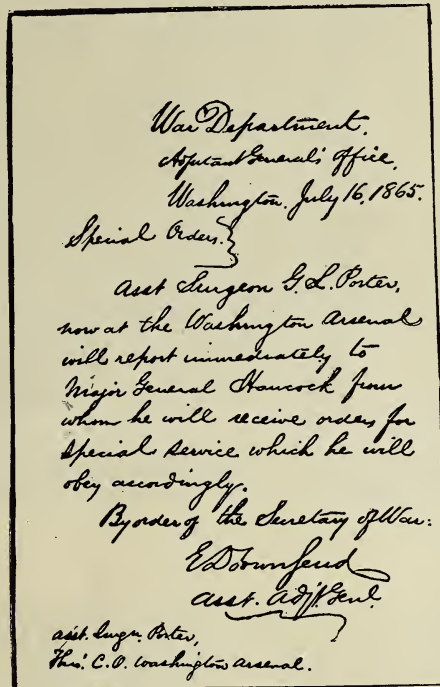 War Department,
Adjutant General's Office,
Washington, July 16, 1865.
Special Orders.
Asst Surgeon G. L. Porter,
now at the Washington Arsenal
will report immediately to
Major General Hancock from
whom he will receive orders for
special service which he will
obey accordingly.
By order of the Secretary of War:
E D Townsend
Asst. Adjt. Genl.
Asst. Surgn. Porter,
Thro'. C.O. Washington Arsenal.